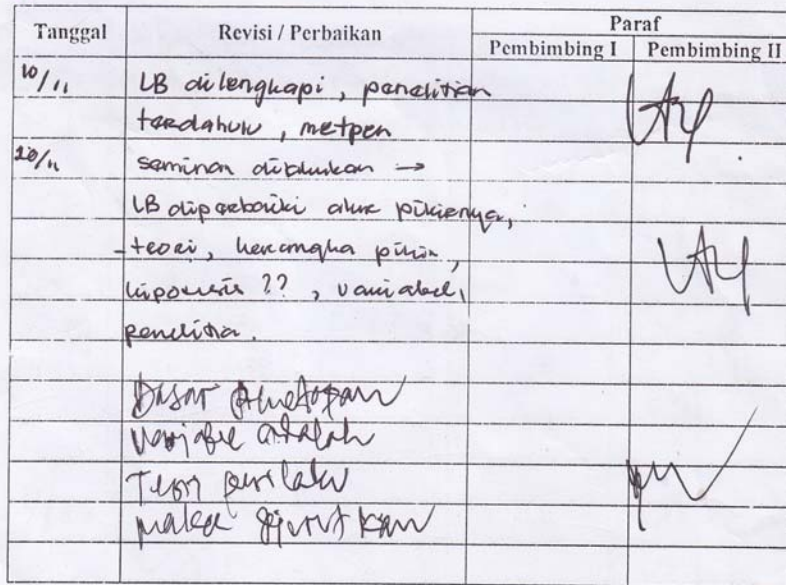 Tanggal Revisi / Perbaikan Paraf
Pembimbing I Pembimbing II
10/11 LB dilengkapi, penelitian
terdahulu, metpen
20/11 seminar →
LB diperbaiki alur pikirnya,
teori, kerangka pikir,
hipotesis ??, variabel,
penelitian.
Dasar penetapan
variabel adalah
Teori perilaku
maka